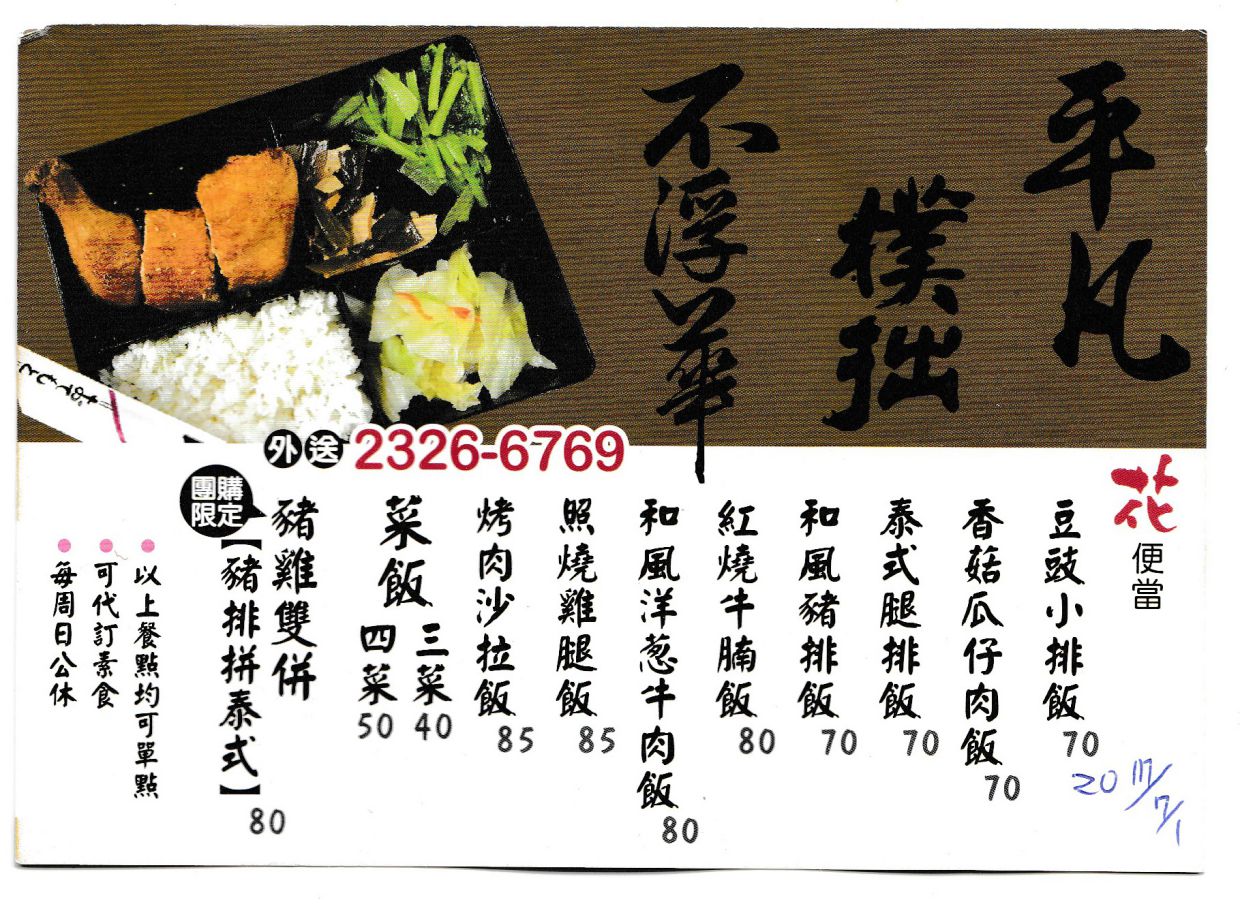 平凡
樸拙
不浮華
外送 2326-6769
花
便當
豆豉小排飯 70
香菇瓜仔肉飯 70
泰式腿排飯 70
和風豬排飯 70
紅燒牛腩飯 80
和風洋蔥牛肉飯 80
照燒雞腿飯 85
烤肉沙拉飯 85
菜飯
三菜 40
四菜 50
團購限定
豬雞雙併
【豬排拼泰式】 80
以上餐點均可單點
可代訂素食
每周日公休
2017/7/1